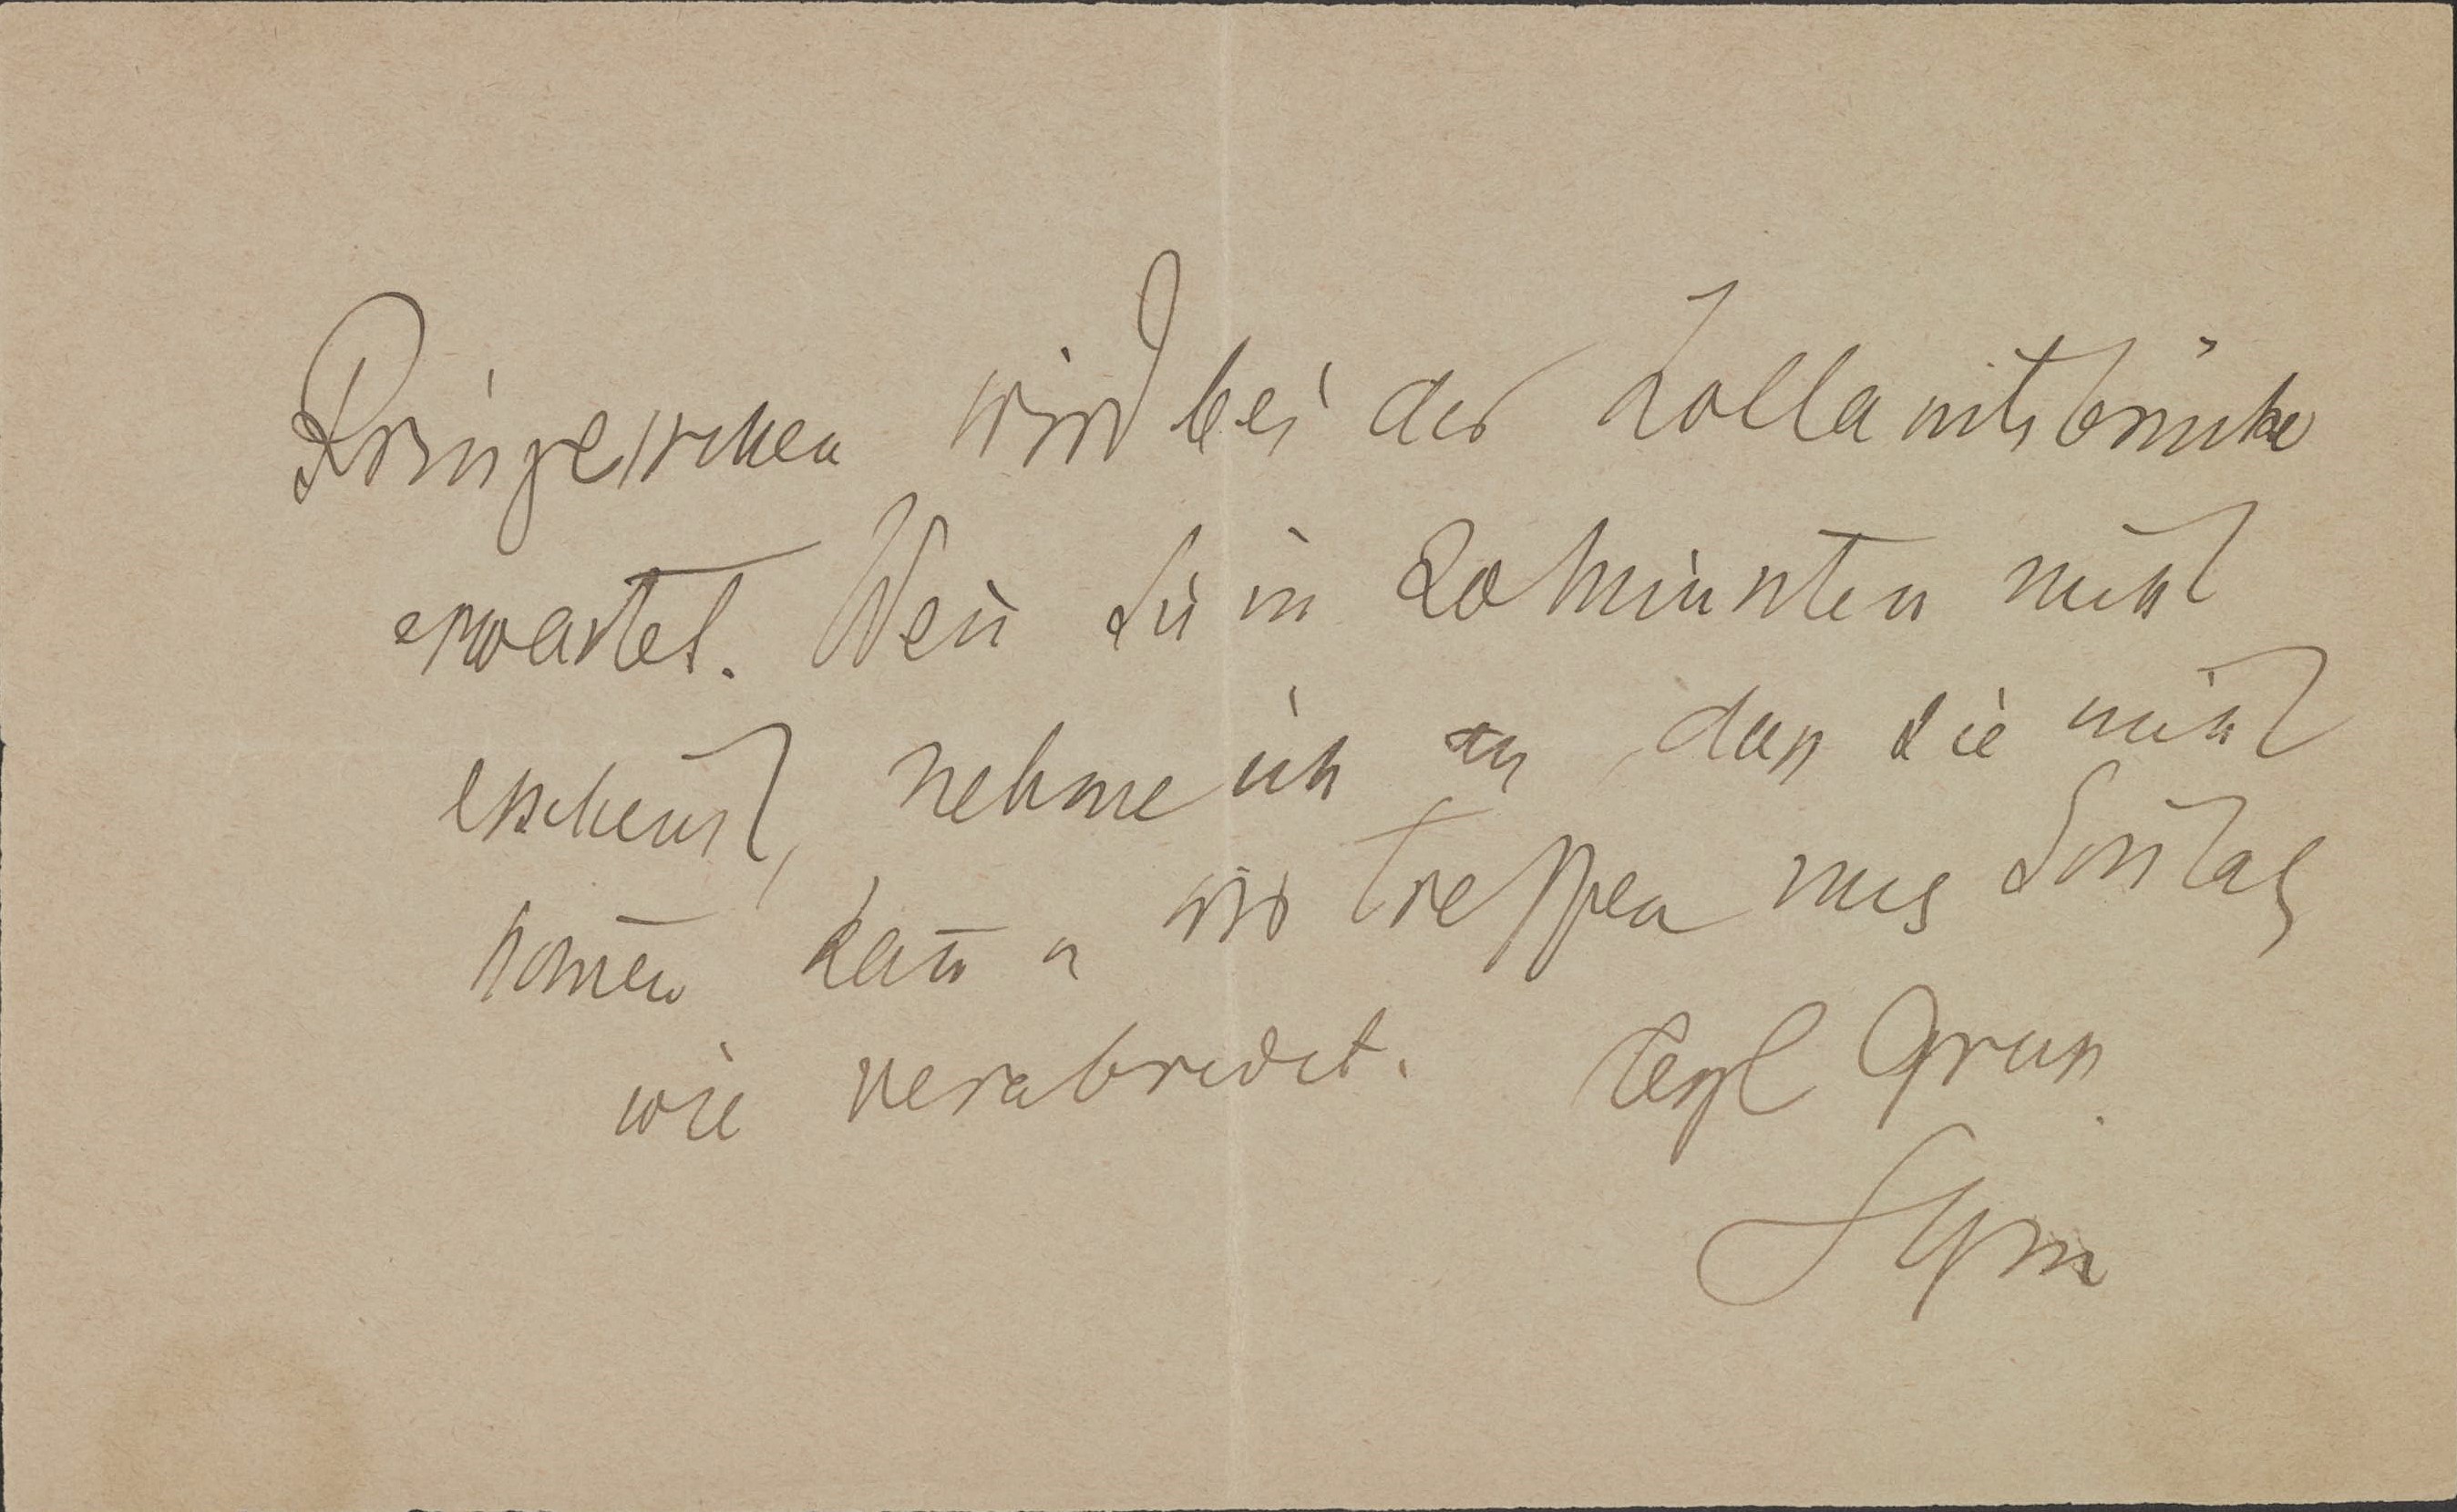 Prinzesschen wird bei der Zollamtsbrücke
erwartet. Weñ Sie in 20 Minuten nicht
erscheint, nehme ich an, dass Sie nicht
kom̄en kan̄ u wir treffen uns Son̄tag
wie verabredet. Gruss